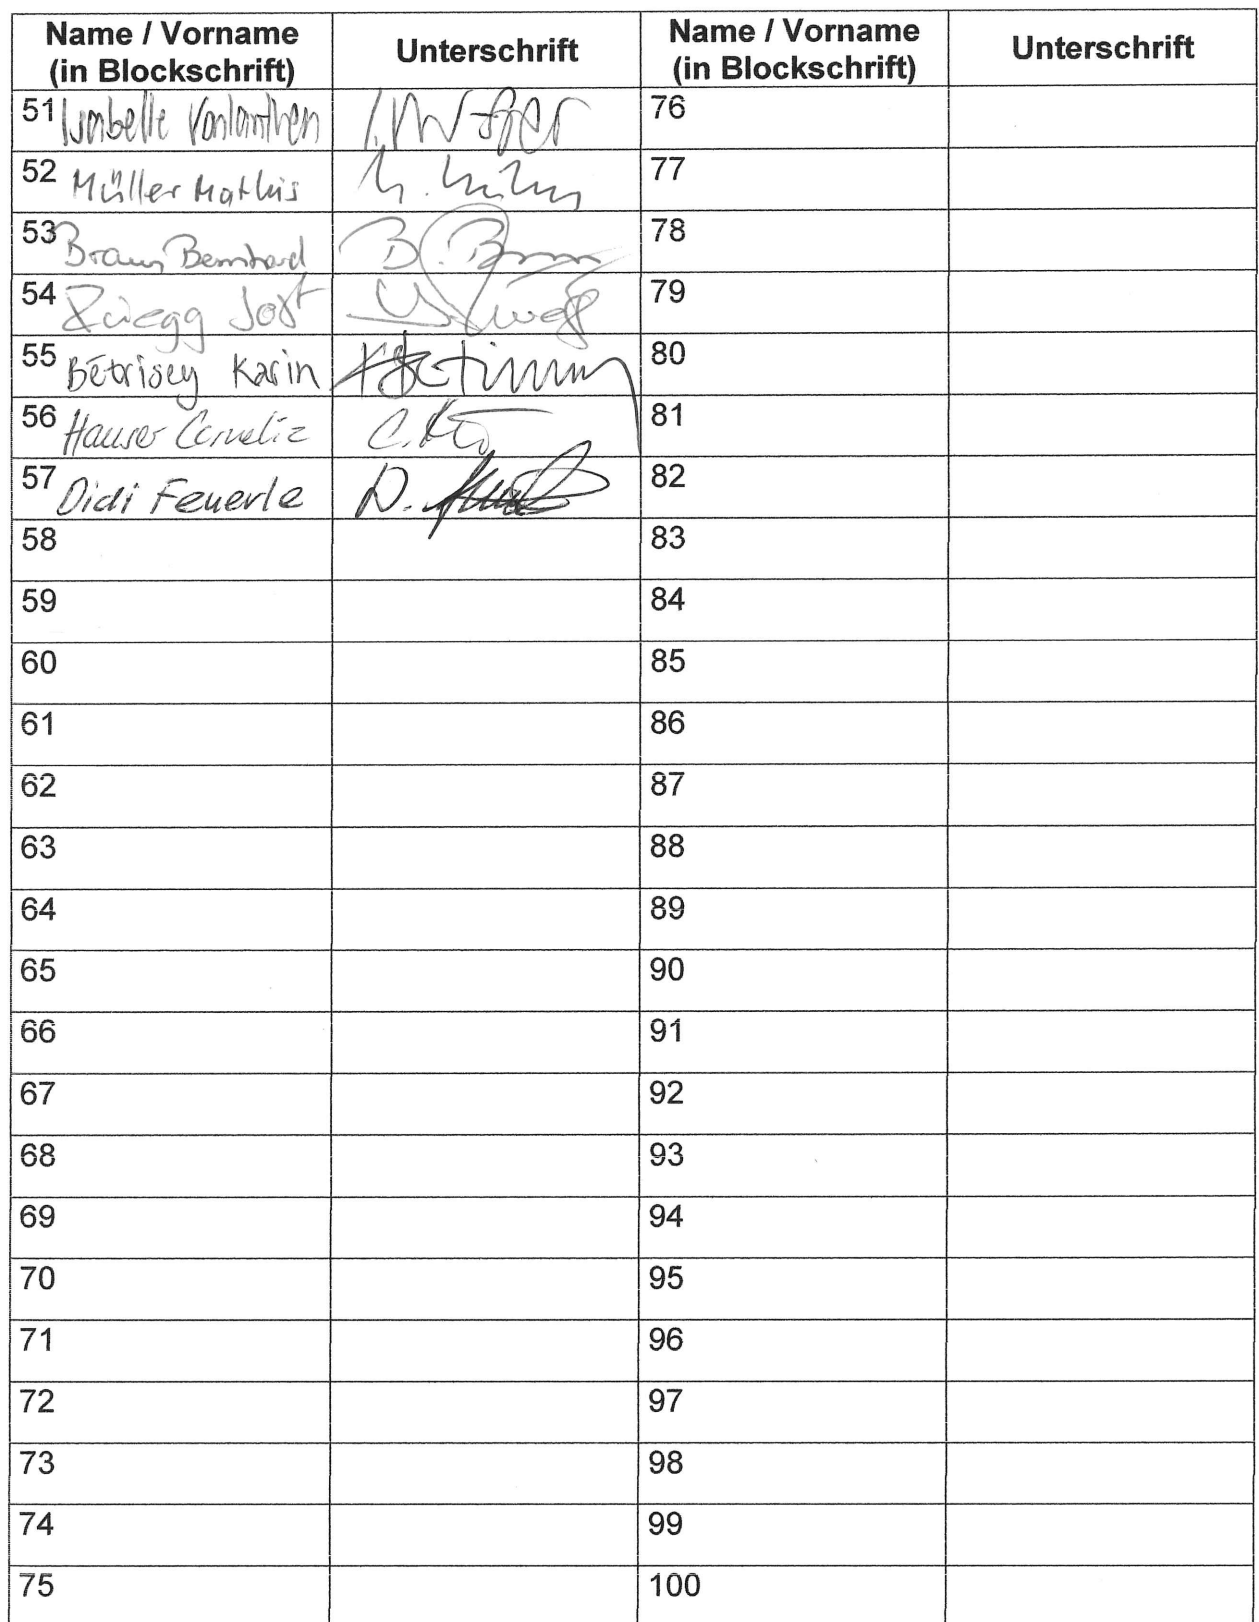 Name / Vorname (in Blockschrift) Unterschrift Name / Vorname (in Blockschrift) Unterschrift
51 Isabelle Vonlanthen 76
52 Müller Mathis 77
53 Braun Bernhard 78
54 Jost 79
55 Bétrisey Karin 80
56 Hauser Cornelia 81
57 Didi Feuerle 82
58 83
59 84
60 85
61 86
62 87
63 88
64 89
65 90
66 91
67 92
68 93
69 94
70 95
71 96
72 97
73 98
74 99
75 100